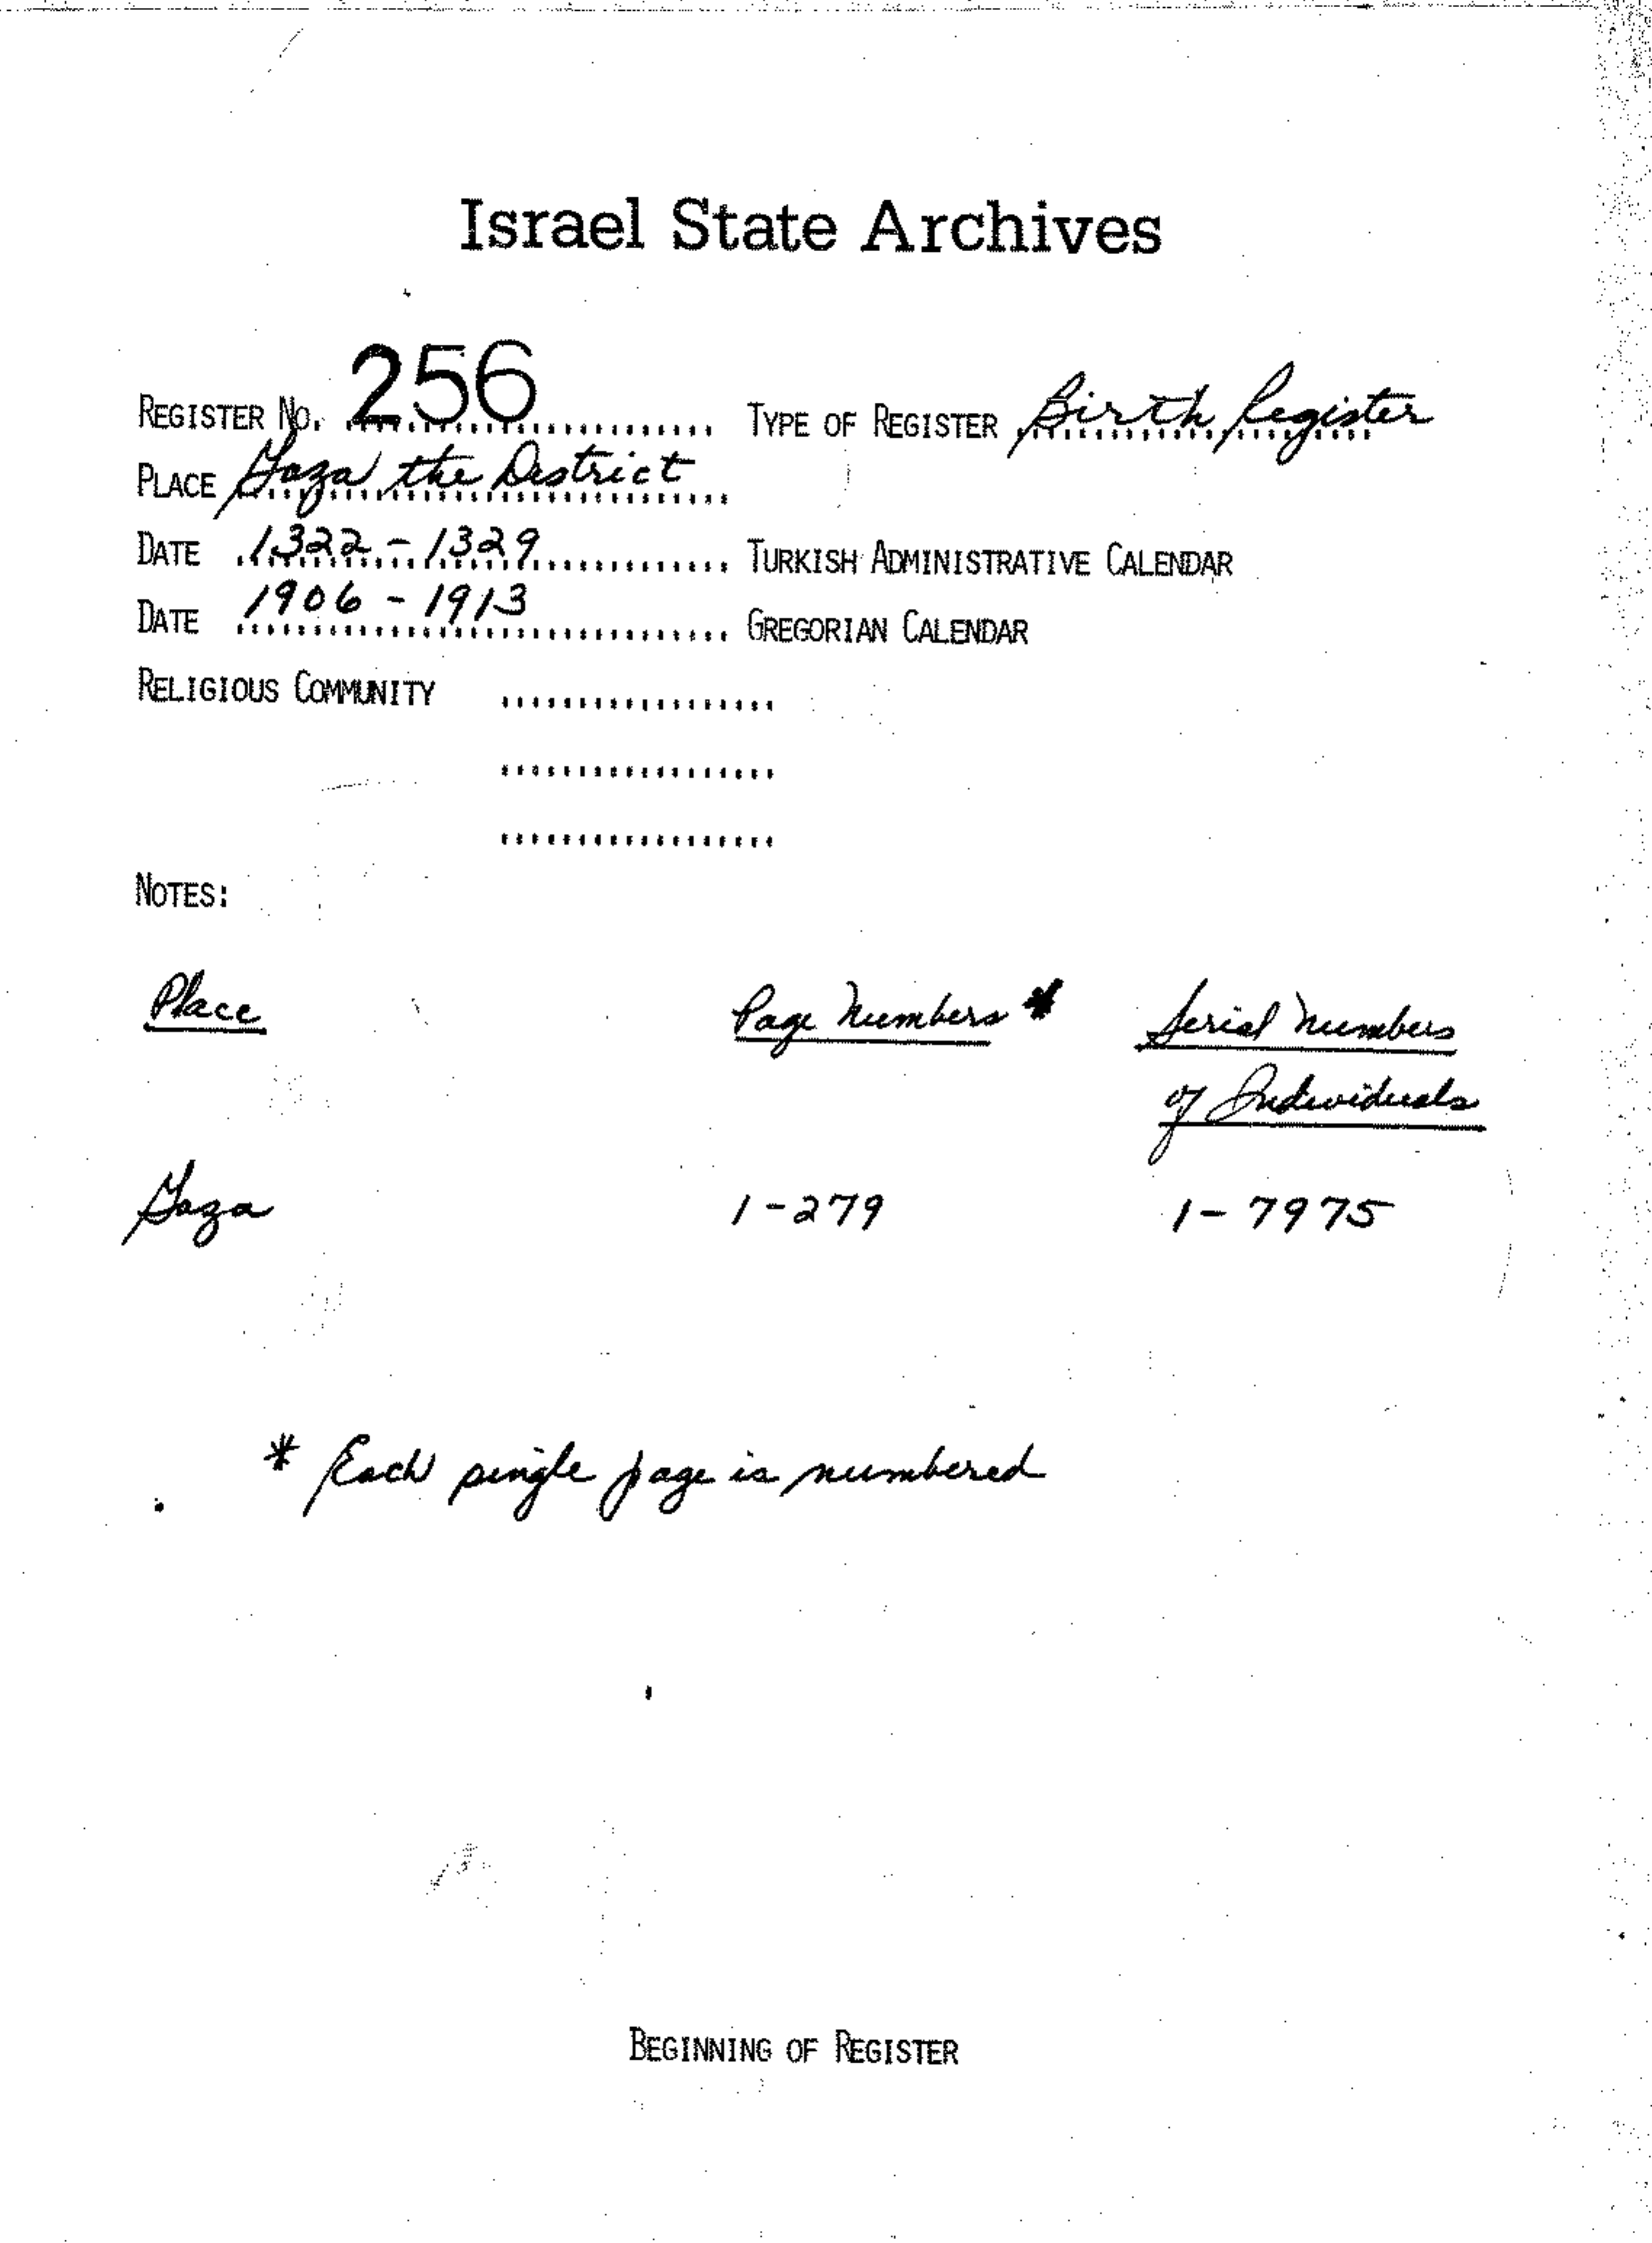 Israel State Archives
REGISTER NO. 256 TYPE OF REGISTER Birth Register
PLACE Gaza the District
DATE 1322 - 1329 TURKISH ADMINISTRATIVE CALENDAR
DATE 1906 - 1913 GREGORIAN CALENDAR
RELIGIOUS COMMUNITY
NOTES:
Place Page Numbers * Serial Numbers
of Individuals
Gaza 1-279 1-7975
* Each single page is numbered
BEGINNING OF REGISTER